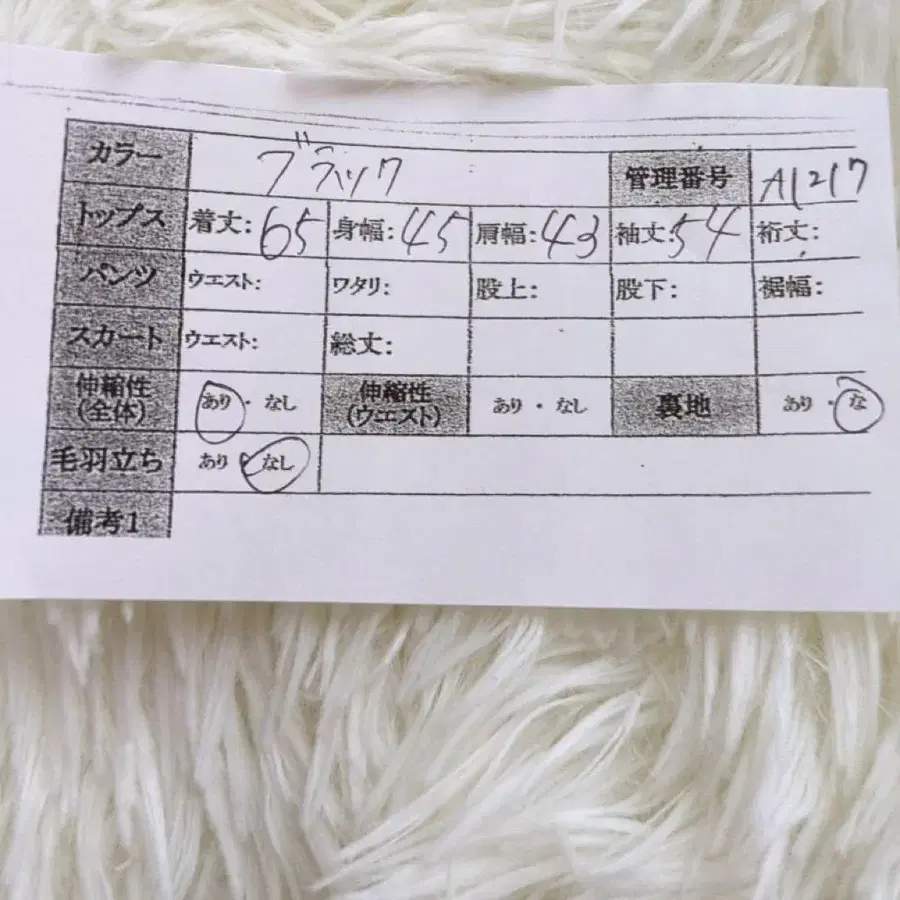 カラー ブラック 管理番号 A1217
トップス 着丈:65 身幅:45 肩幅:43 袖丈:54 裄丈:
パンツ ウエスト: ワタリ: 股上: 股下: 裾幅:
スカート ウエスト: 総丈:
伸縮性 (全体) あり・なし 伸縮性 (ウエスト) あり・なし 裏地 あり・な
毛羽立ち あり・なし
備考1